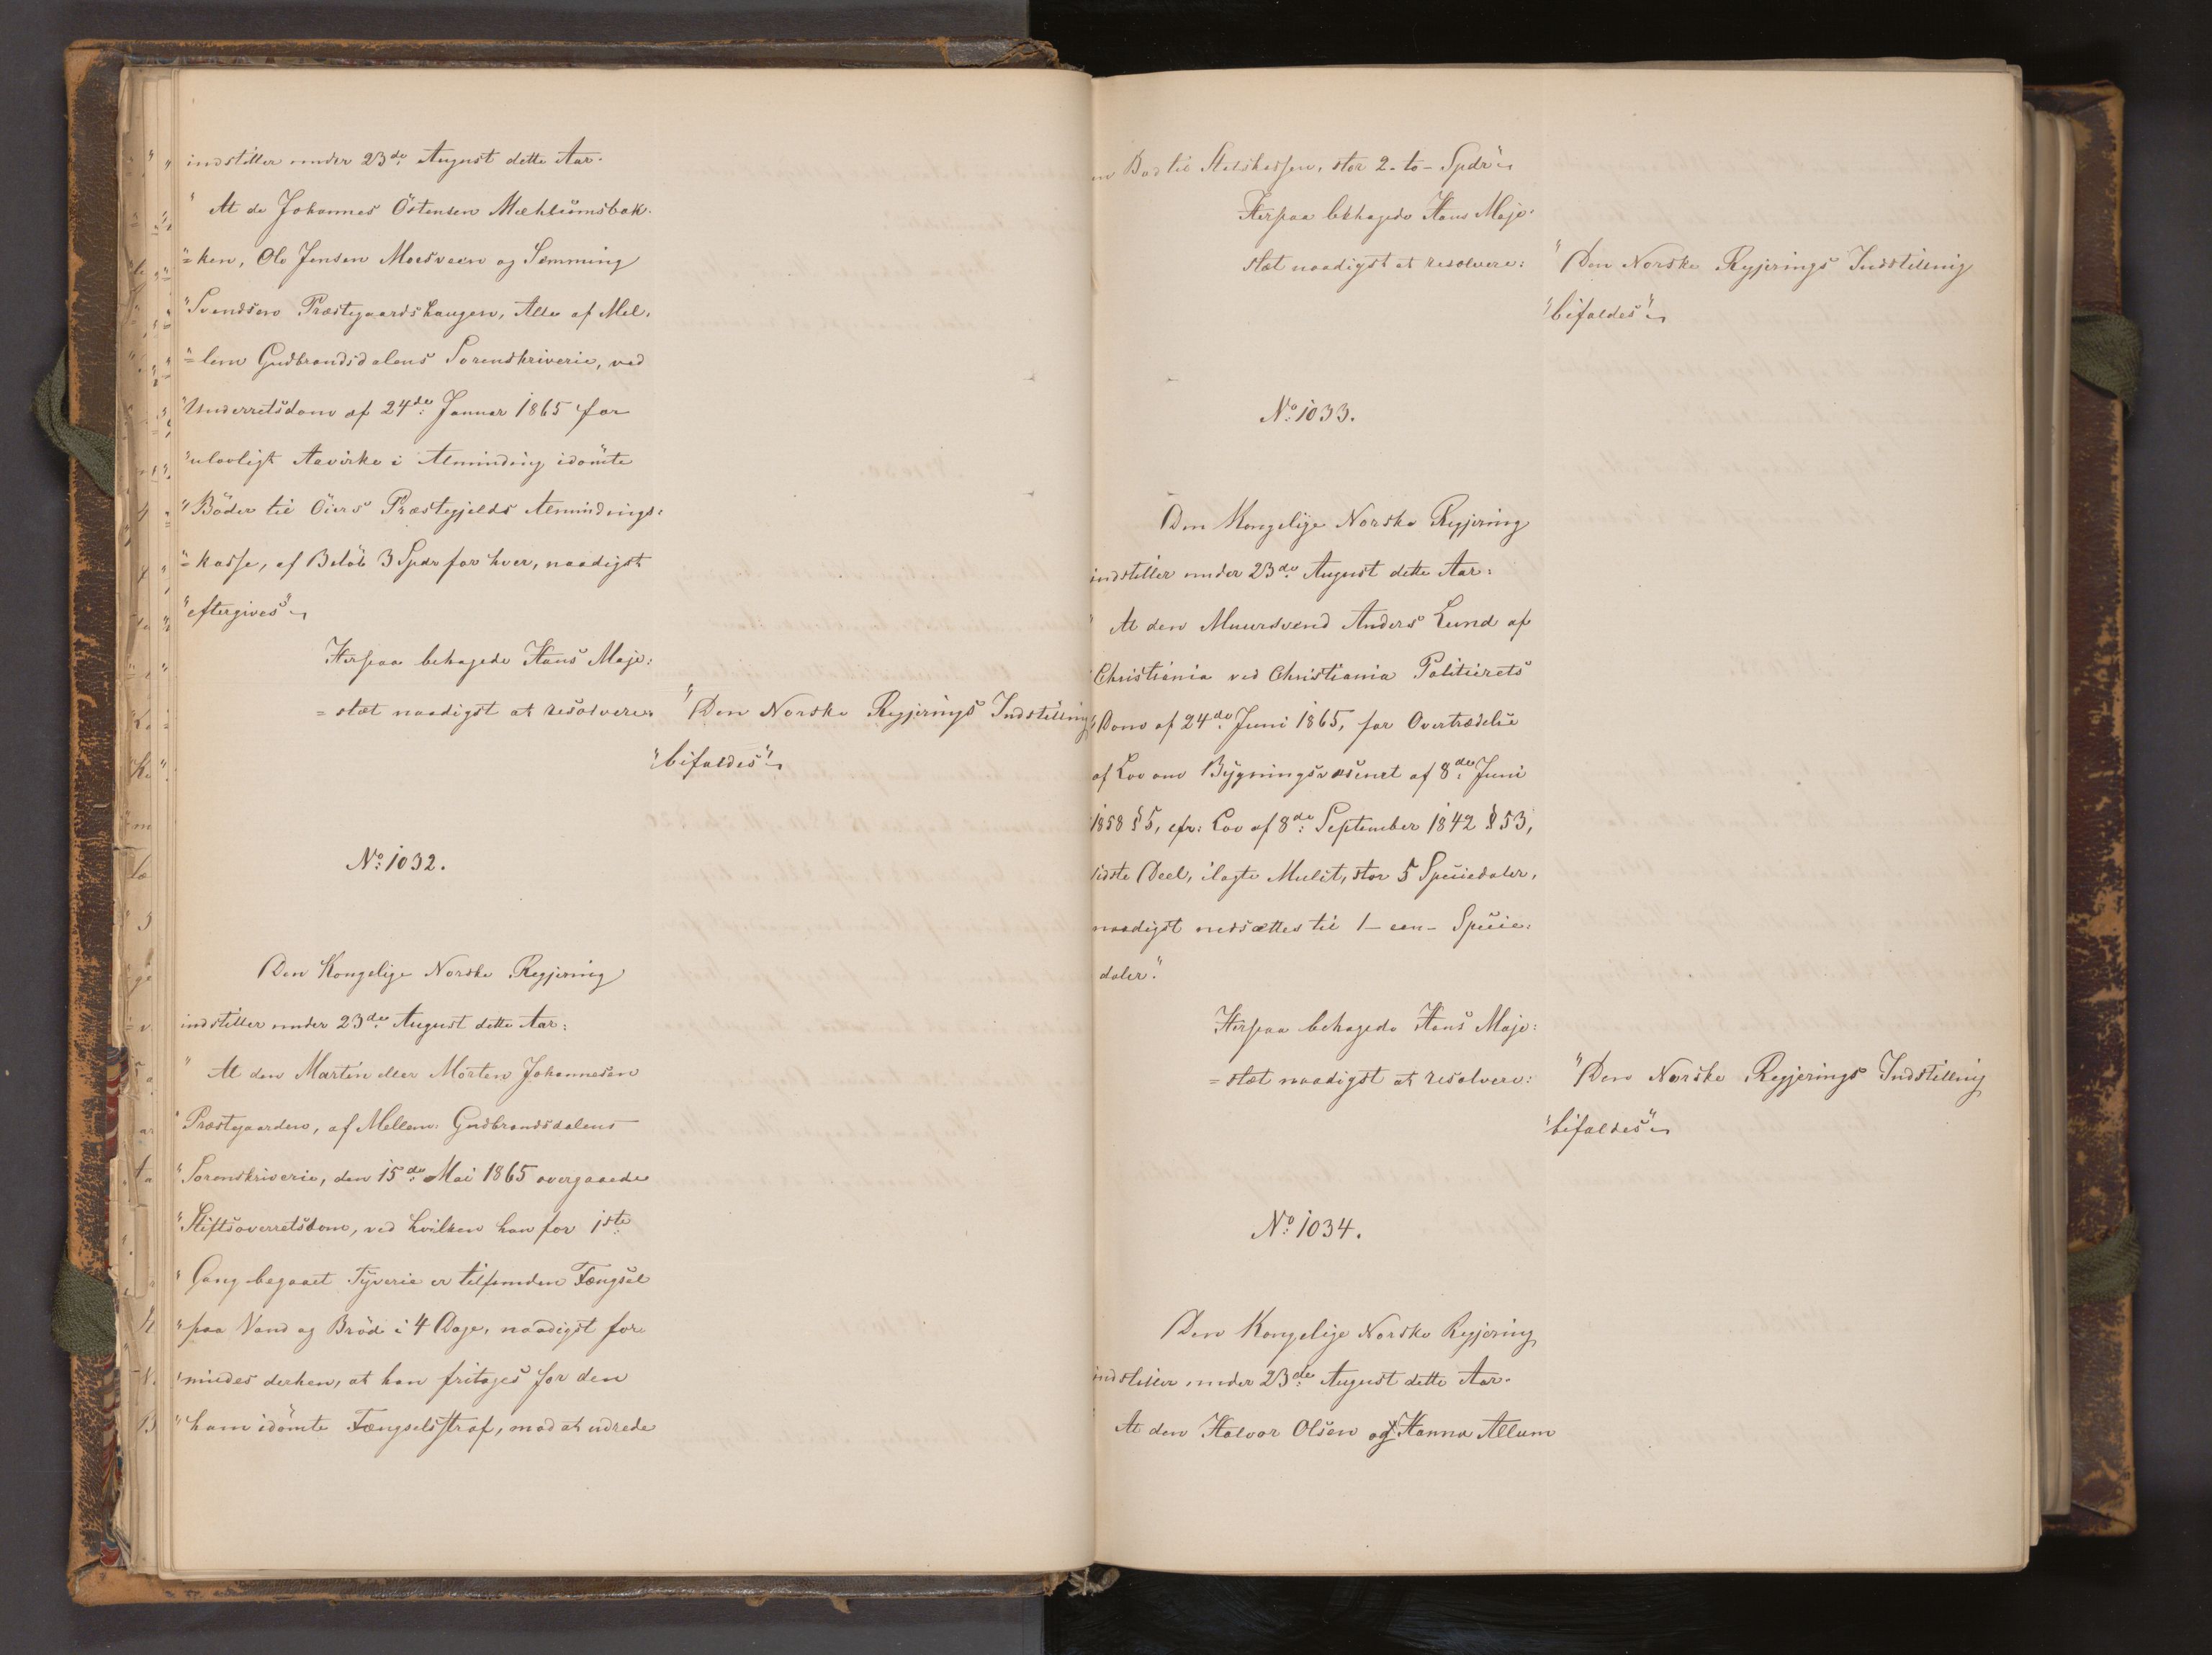 indstiller under 23de August dette Aar.
" At de Johannes Östensen Mæhlumsbak-
"=ken, Ole Jensen Moesveen og Semming
"Svendsen Præstegaardshaugen, Alle af Mel-
"=lem Gudbrandsdalens Sorenskriverie, ved
"Underretsdom af 24de Januar 1865 for
"ulovligt Aavirke i Alminding idømte
"Böder til Öiers Præstegjelds Almindings-
"=kasse, af Belöb 3 Spdr for hver, naadigst
"eftergives"
Herpaa behagede Hans Maje:
=stæt naadigst at resolvere:
"Den Norske Regjerings Indstilling
"bifaldes"
No: 1032.
Den Kongelige Norske Regjering
indstiller under 23de August dette Aar:
" At den Martin eller Morten Johannesen
"Præstgaarden, af Mellem Gudbrandsdalens
"Sorenskriverie, den 15de Mai 1865 overgaaede
"Stiftsoverretsdom, ved hvilken han for 1ste
"Gang begaaet Tyverie er tilfunden Fængsel
"paa Vand og Bröd i 4 Dage, naadigst for-
"mildes derhen, at han fritages for den
"ham idömte Fængselsstraf, mod at udrede
en Bod til Statskassen, stor 2 - to - Spdr"
Herpaa behagede Hans Maje-
stæt naadigst at resolvere:
"Den Norske Regjerings Indstilling
"bifaldes"
No: 1033.
Den Kongelige Norske Regjering
indstiller under 23de August dette Aar:
" At den Muursvend Anders Lund af
"Christiania ved Christiania Politierets
"Dom af 24de Juni 1865, for Overtrædelse
af Lov om Bygningsvæsenet af 8de Juni
1858 § 5, cfr: Lov af 8de September 1842 § 53,
sidste Deel, ilagte Mulct, stor 5 Speciedaler,
naadigst nedsættes til 1 - een - Specie-
daler."
Herpaa behagede Hans Maje:
=stæt naadigst at resolvere:
"Den Norske Regjerings Indstilling
"bifaldes"
No: 1034.
Den Kongelige Norske Regjering
indstiller under 23de August dette Aar.
At den Halvor Olsen og Hanna Allum